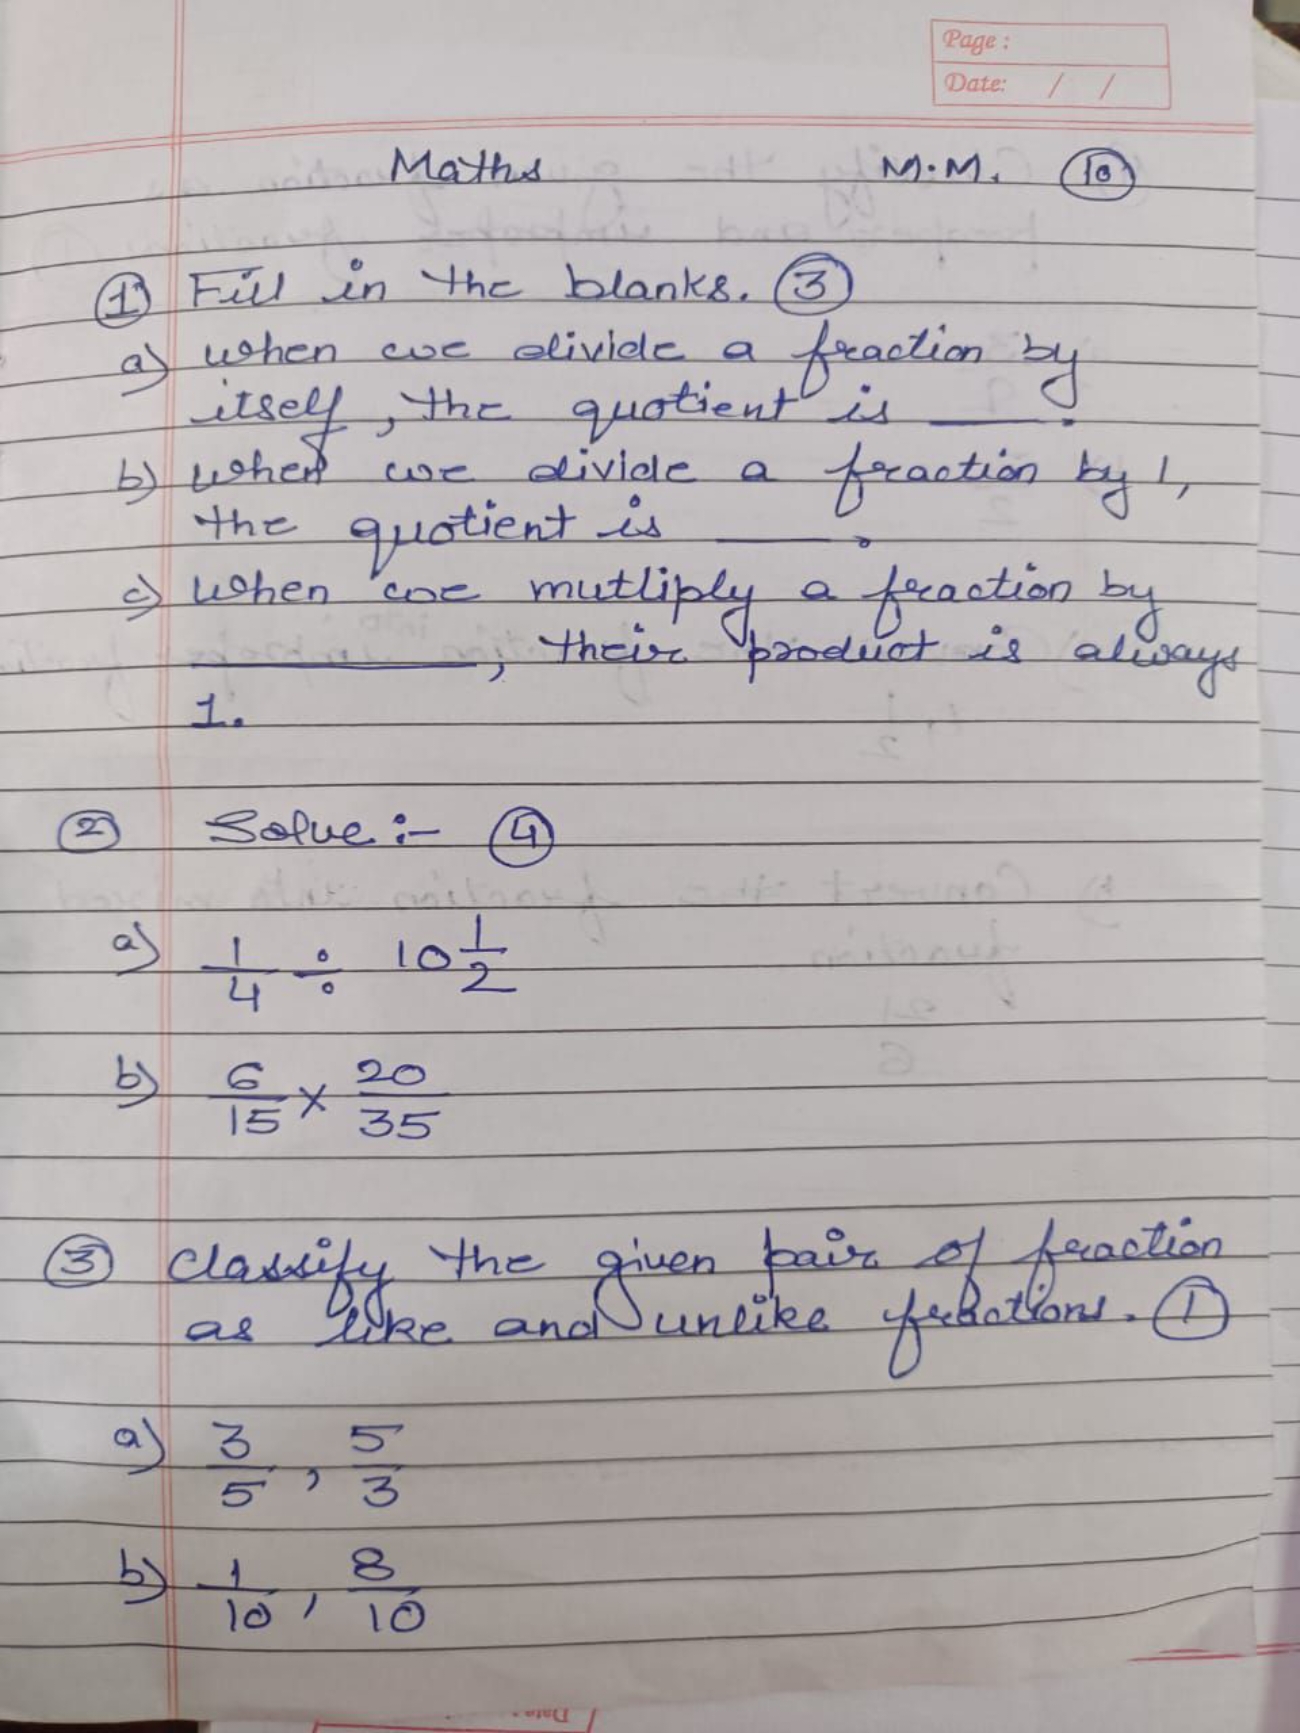 Page :
Date: / /
Maths M.M. 10
1 Fill in the blanks. 3
a) when we divide a fraction by
itself, the quotient is ____.
b) when we divide a fraction by 1,
the quotient is ____.
c) when we mutliply a fraction by
________, their product is always
1.
2 Solve :- 4
a) 1/4 ÷ 10 1/2
b) 6/15 × 20/35
3 Classify the given pair of fraction
as like and unlike fractions. 1
a) 3/5 , 5/3
b) 1/10 , 8/10